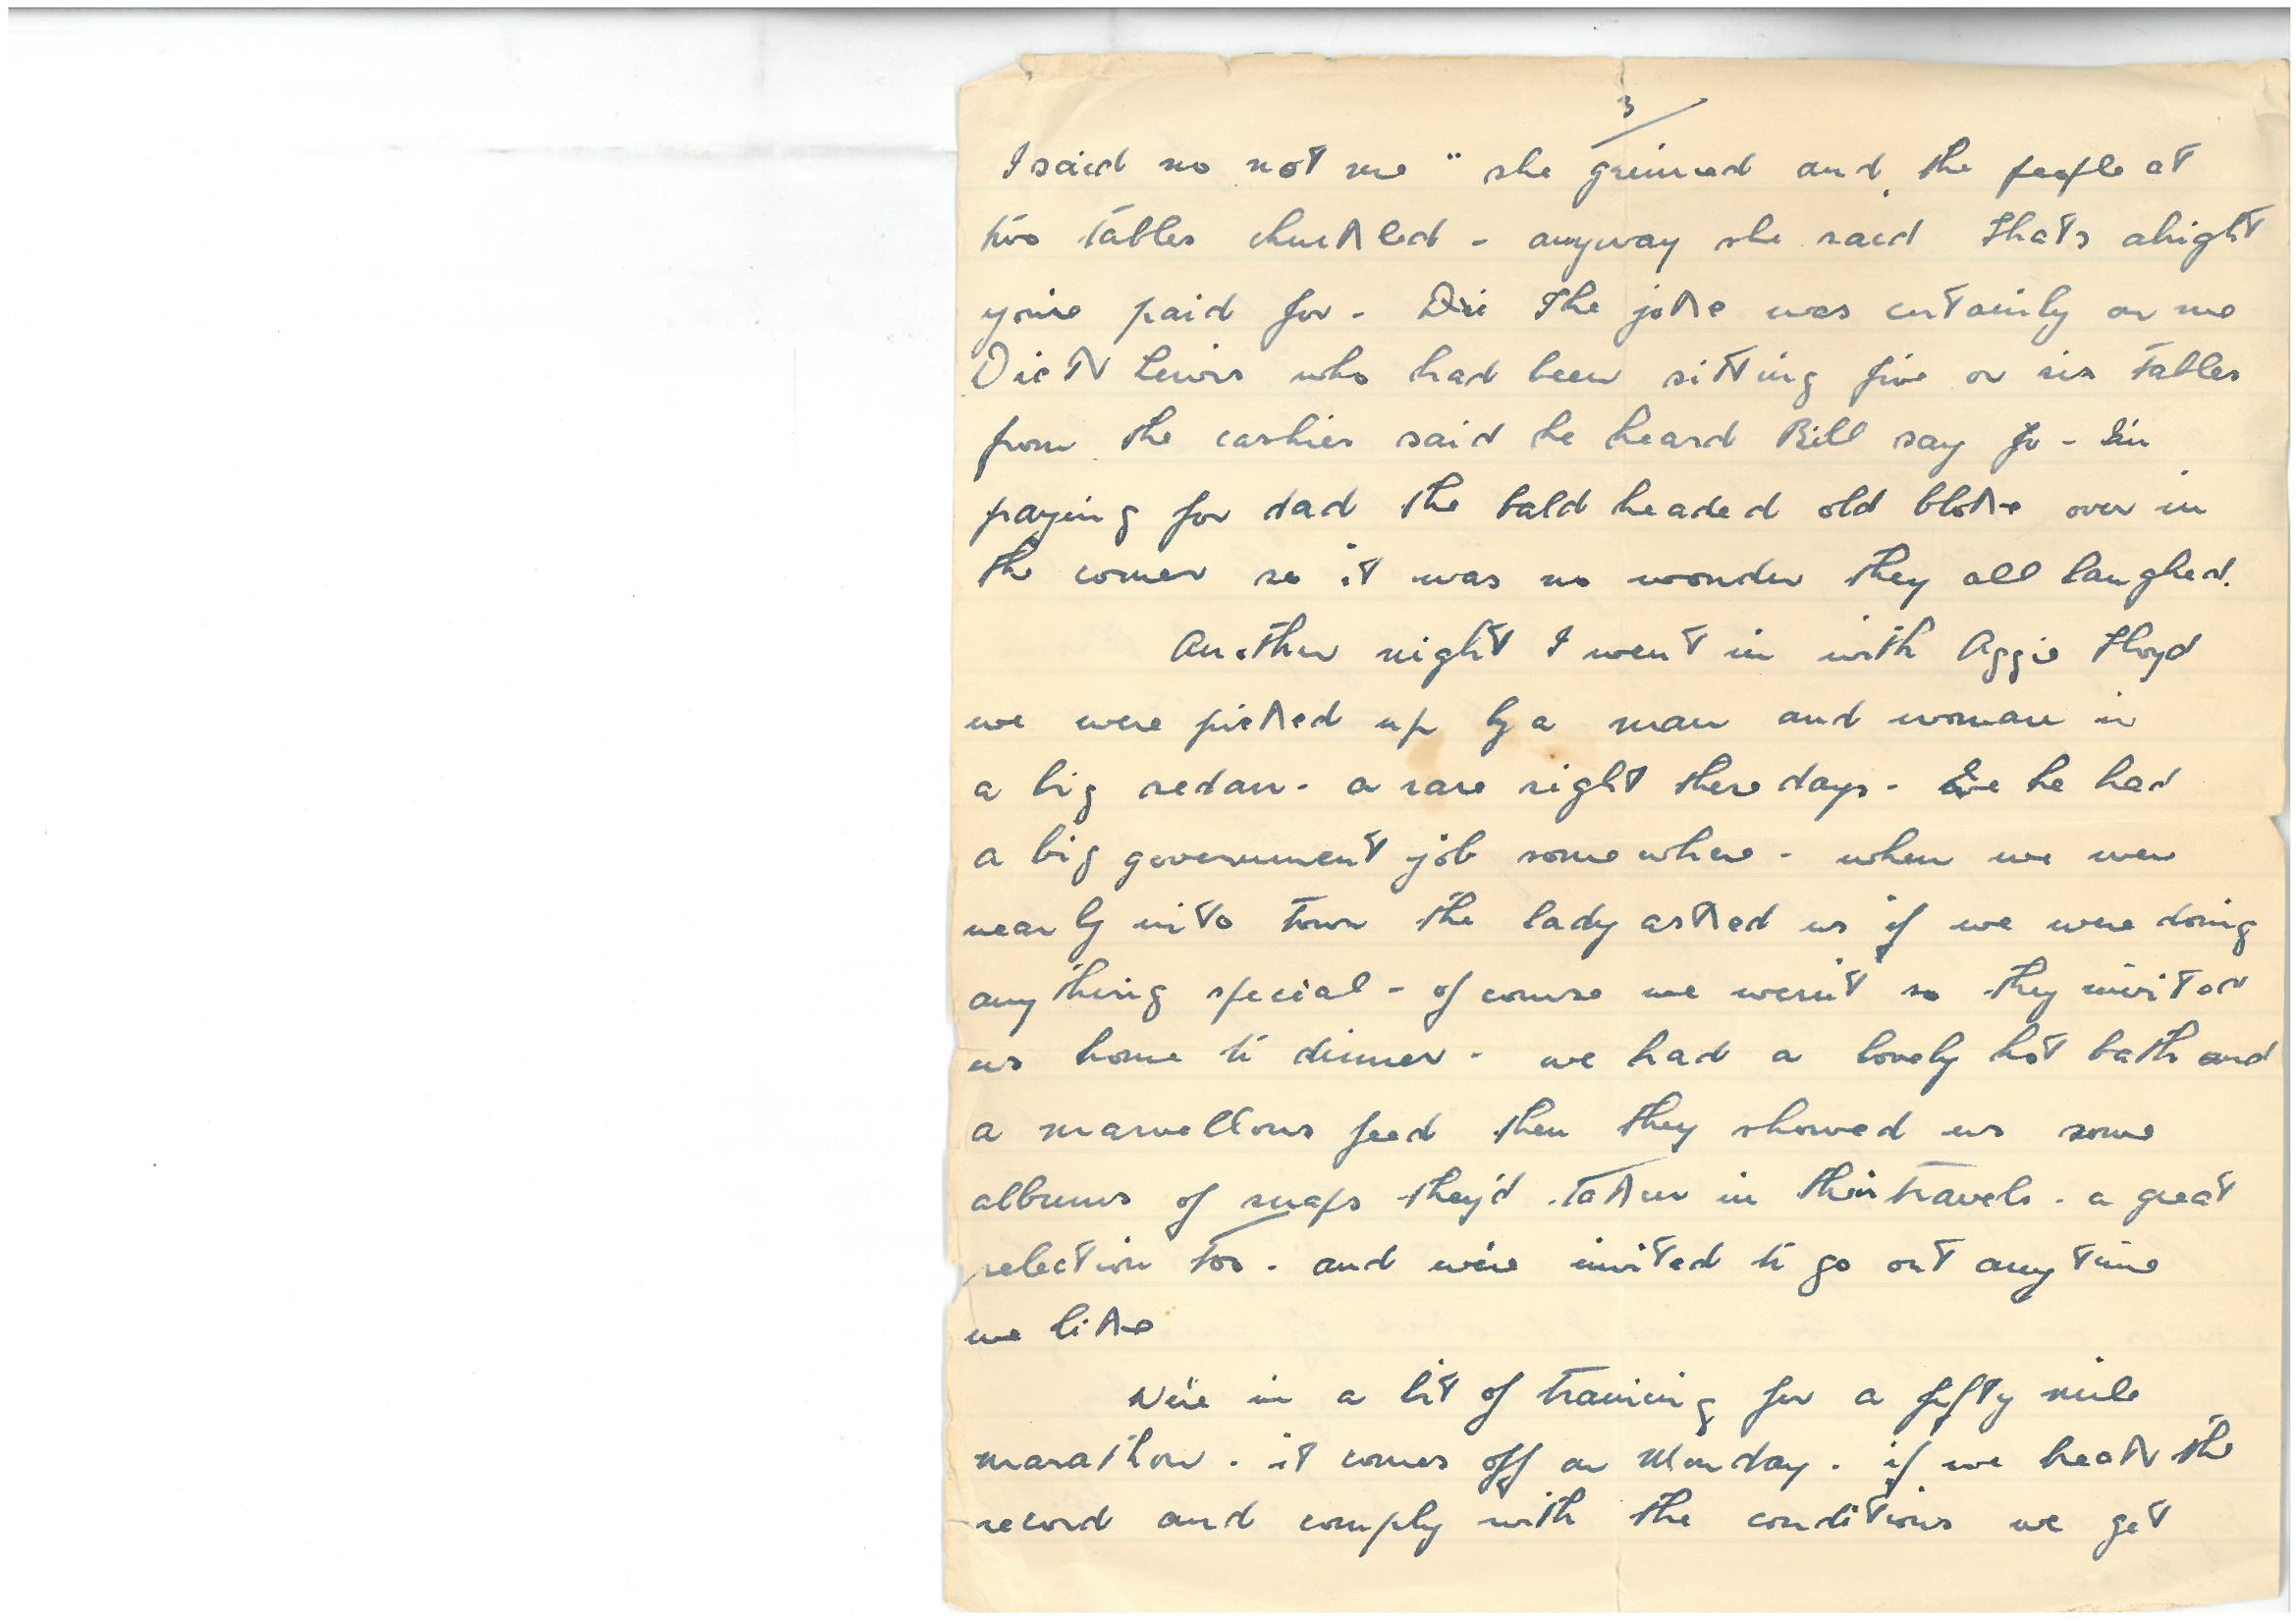 3/
I said no not me" she grinned and the people at
two tables chuckled - anyway she said thats alright
you're paid for - The joke was certainly on me
Dick Lewis who had been sitting five or six tables
from the cashier said he heard Bill say - I'm
paying for dad the bald headed old bloke over in
the corner so it was no wonder they all laughed.
Another night I went in with Aggie Lloyd
we were picked up by a man and woman in
a big sedan - a rare sight these days - he had
a big government job somewhere - when we were
nearly into town the lady asked us if we were doing
anything special - of course we weren't so they invited
us home to dinner - we had a lovely hot bath and
a marvellous feed then they showed us some
albums of snaps they'd taken in their travels - a great
selection too - and we're invited to go out anytime
we like
We're in a bit of training for a fifty mile
marathon - it comes off on Monday - if we break the
record and comply with the conditions we get